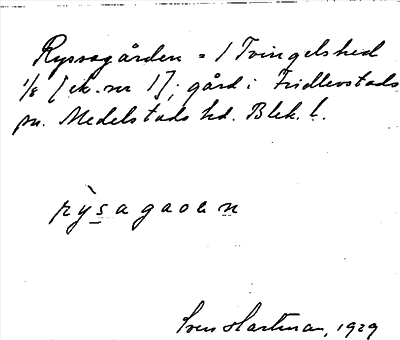 Ryssagården = 1 Tvingelshed
1/8 [ek. nr 1]; gård i Fridlevstads
sn. Medelstads hd. Blek. l.
rỳs̲agaoen̲
Sven Hartman, 1929